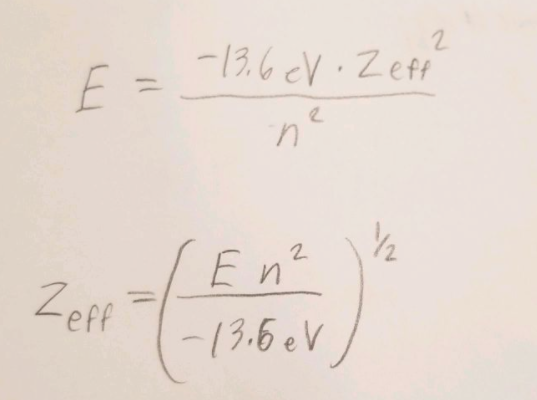 E = -13.6 eV · Zeff² / n²
Zeff = (E n² / -13.6 eV)^½